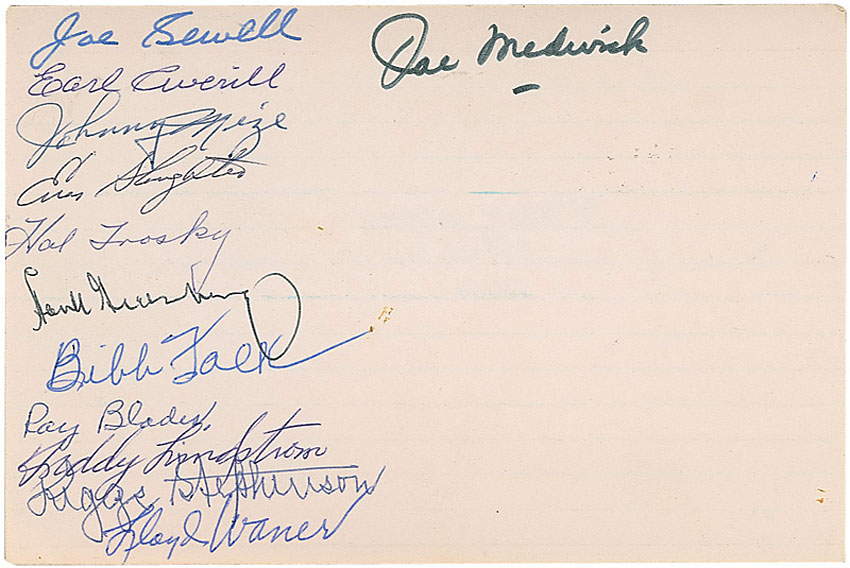 Joe Sewell
Joe Medwick
Earl Averill
Johnny Mize
Enos Slaughter
Hal Trosky
Hank Greenberg
Bibb Falk
Ray Blades
Freddy Lindstrom
Riggs Stephenson
Lloyd Waner